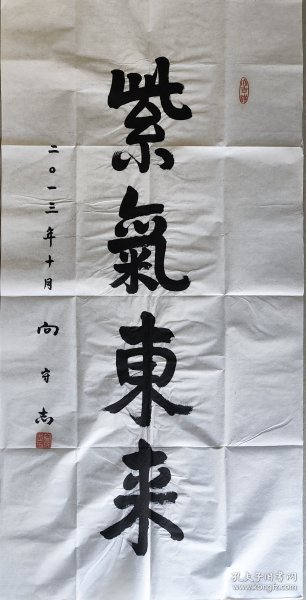 紫氣東来
二〇一三年十月 向守志
孔夫子旧书网
www.kongfz.com